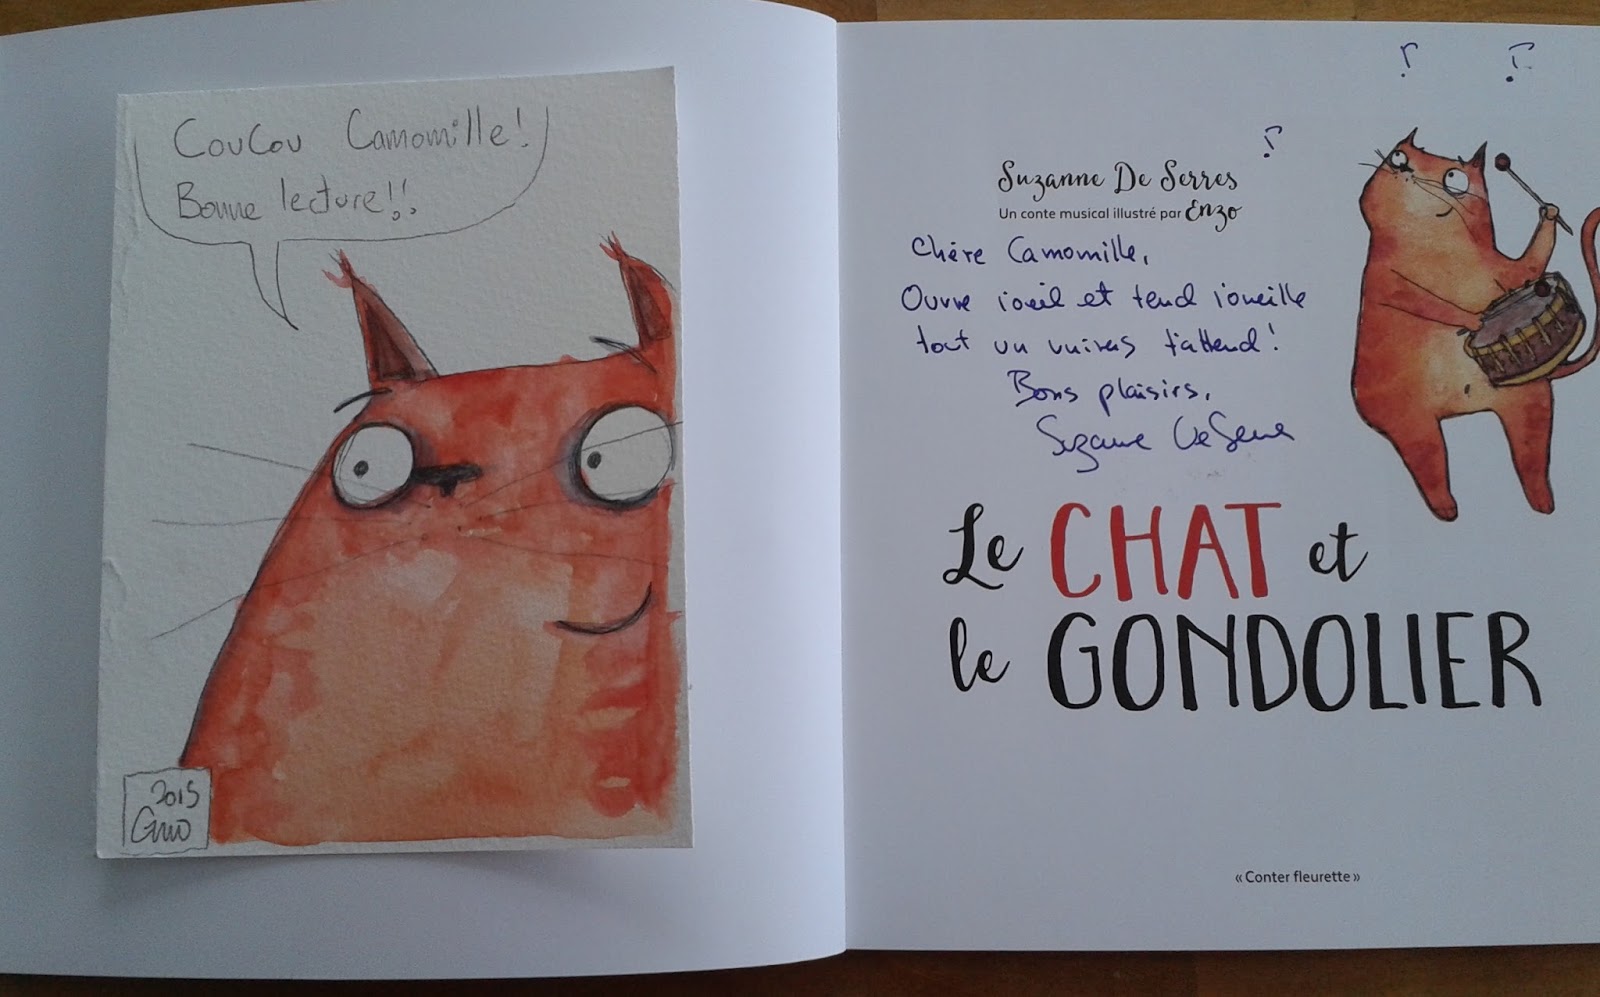 CouCou Camomille!
Bonne lecture!!
2015
Suzanne De Serres
Un conte musical illustré par Enzo
Chère Camomille,
Ouvre l'oeil et tend l'oreille
tout un univers t'attend!
Bons plaisirs,
Suzanne De Serres
Le CHAT et
le GONDOLIER
« Conter fleurette »